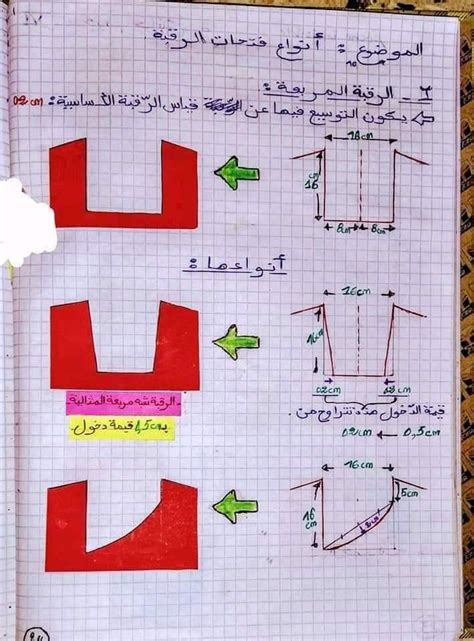 الموضوع : أنواع فتحات الرقبة.
6- الرقبة المربعة :
يكون التوسيع فيها عن قياس الرقبة الأساسية : 02cm
16cm
16 cm
8cm 8cm
أنواعها :
16cm
16cm
02cm 02cm
الرقبة شبه مربعة المثالية.
بـ 1,5cm قيمة دخول.
قيمة الدخول هذه تتراوح من.
0,5cm ← 02cm
16cm
5cm
16 cm
2cm